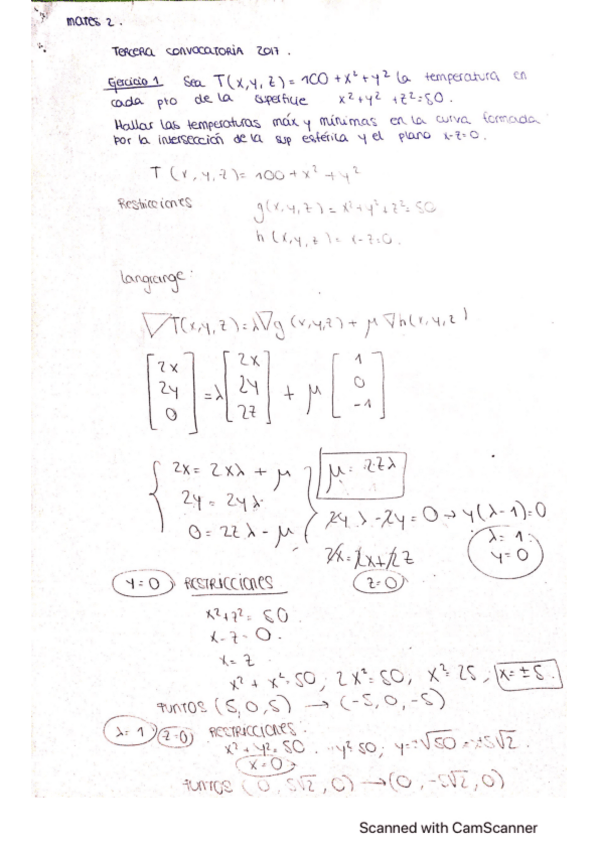 martes 2.
TERCERA CONVOCATORIA 2017.
Ejercicio 1 Sea T(x,y,z)=100+x²+y² la temperatura en
cada pto de la superficie x²+y²+z²=50.
Hallar las temperaturas máx y mínimas en la curva formada
por la intersección de la sup esférica y el plano x-z=0.
T(x,y,z)=100+x²+y²
Restricciones g(x,y,z)=x²+y²+z²=50
h(x,y,z)=x-z=0.
Langrange:
∇T(x,y,z)=λ∇g(x,y,z)+μ∇h(x,y,z)
[2x 2y 0] = λ [2x 2y 2z] + μ [1 0 -1]
2x=2xλ+μ μ=2zλ
2y=2yλ 2yλ-2y=0→y(λ-1)=0
0=2zλ-μ λ=1
y=0
2x=2x+2z
y=0 RESTRICCIONES z=0
x²+z²=50.
x-z=0.
x=z
x²+x²=50; 2x²=50, x²=25, x=±5.
PUNTOS (5,0,5) → (-5,0,-5)
λ=1 z=0 RESTRICCIONES:
x²+y²=50. y²=50; y=±√50=±5√2.
x=0
PUNTOS (0,5√2,0) → (0,-5√2,0)
Scanned with CamScanner